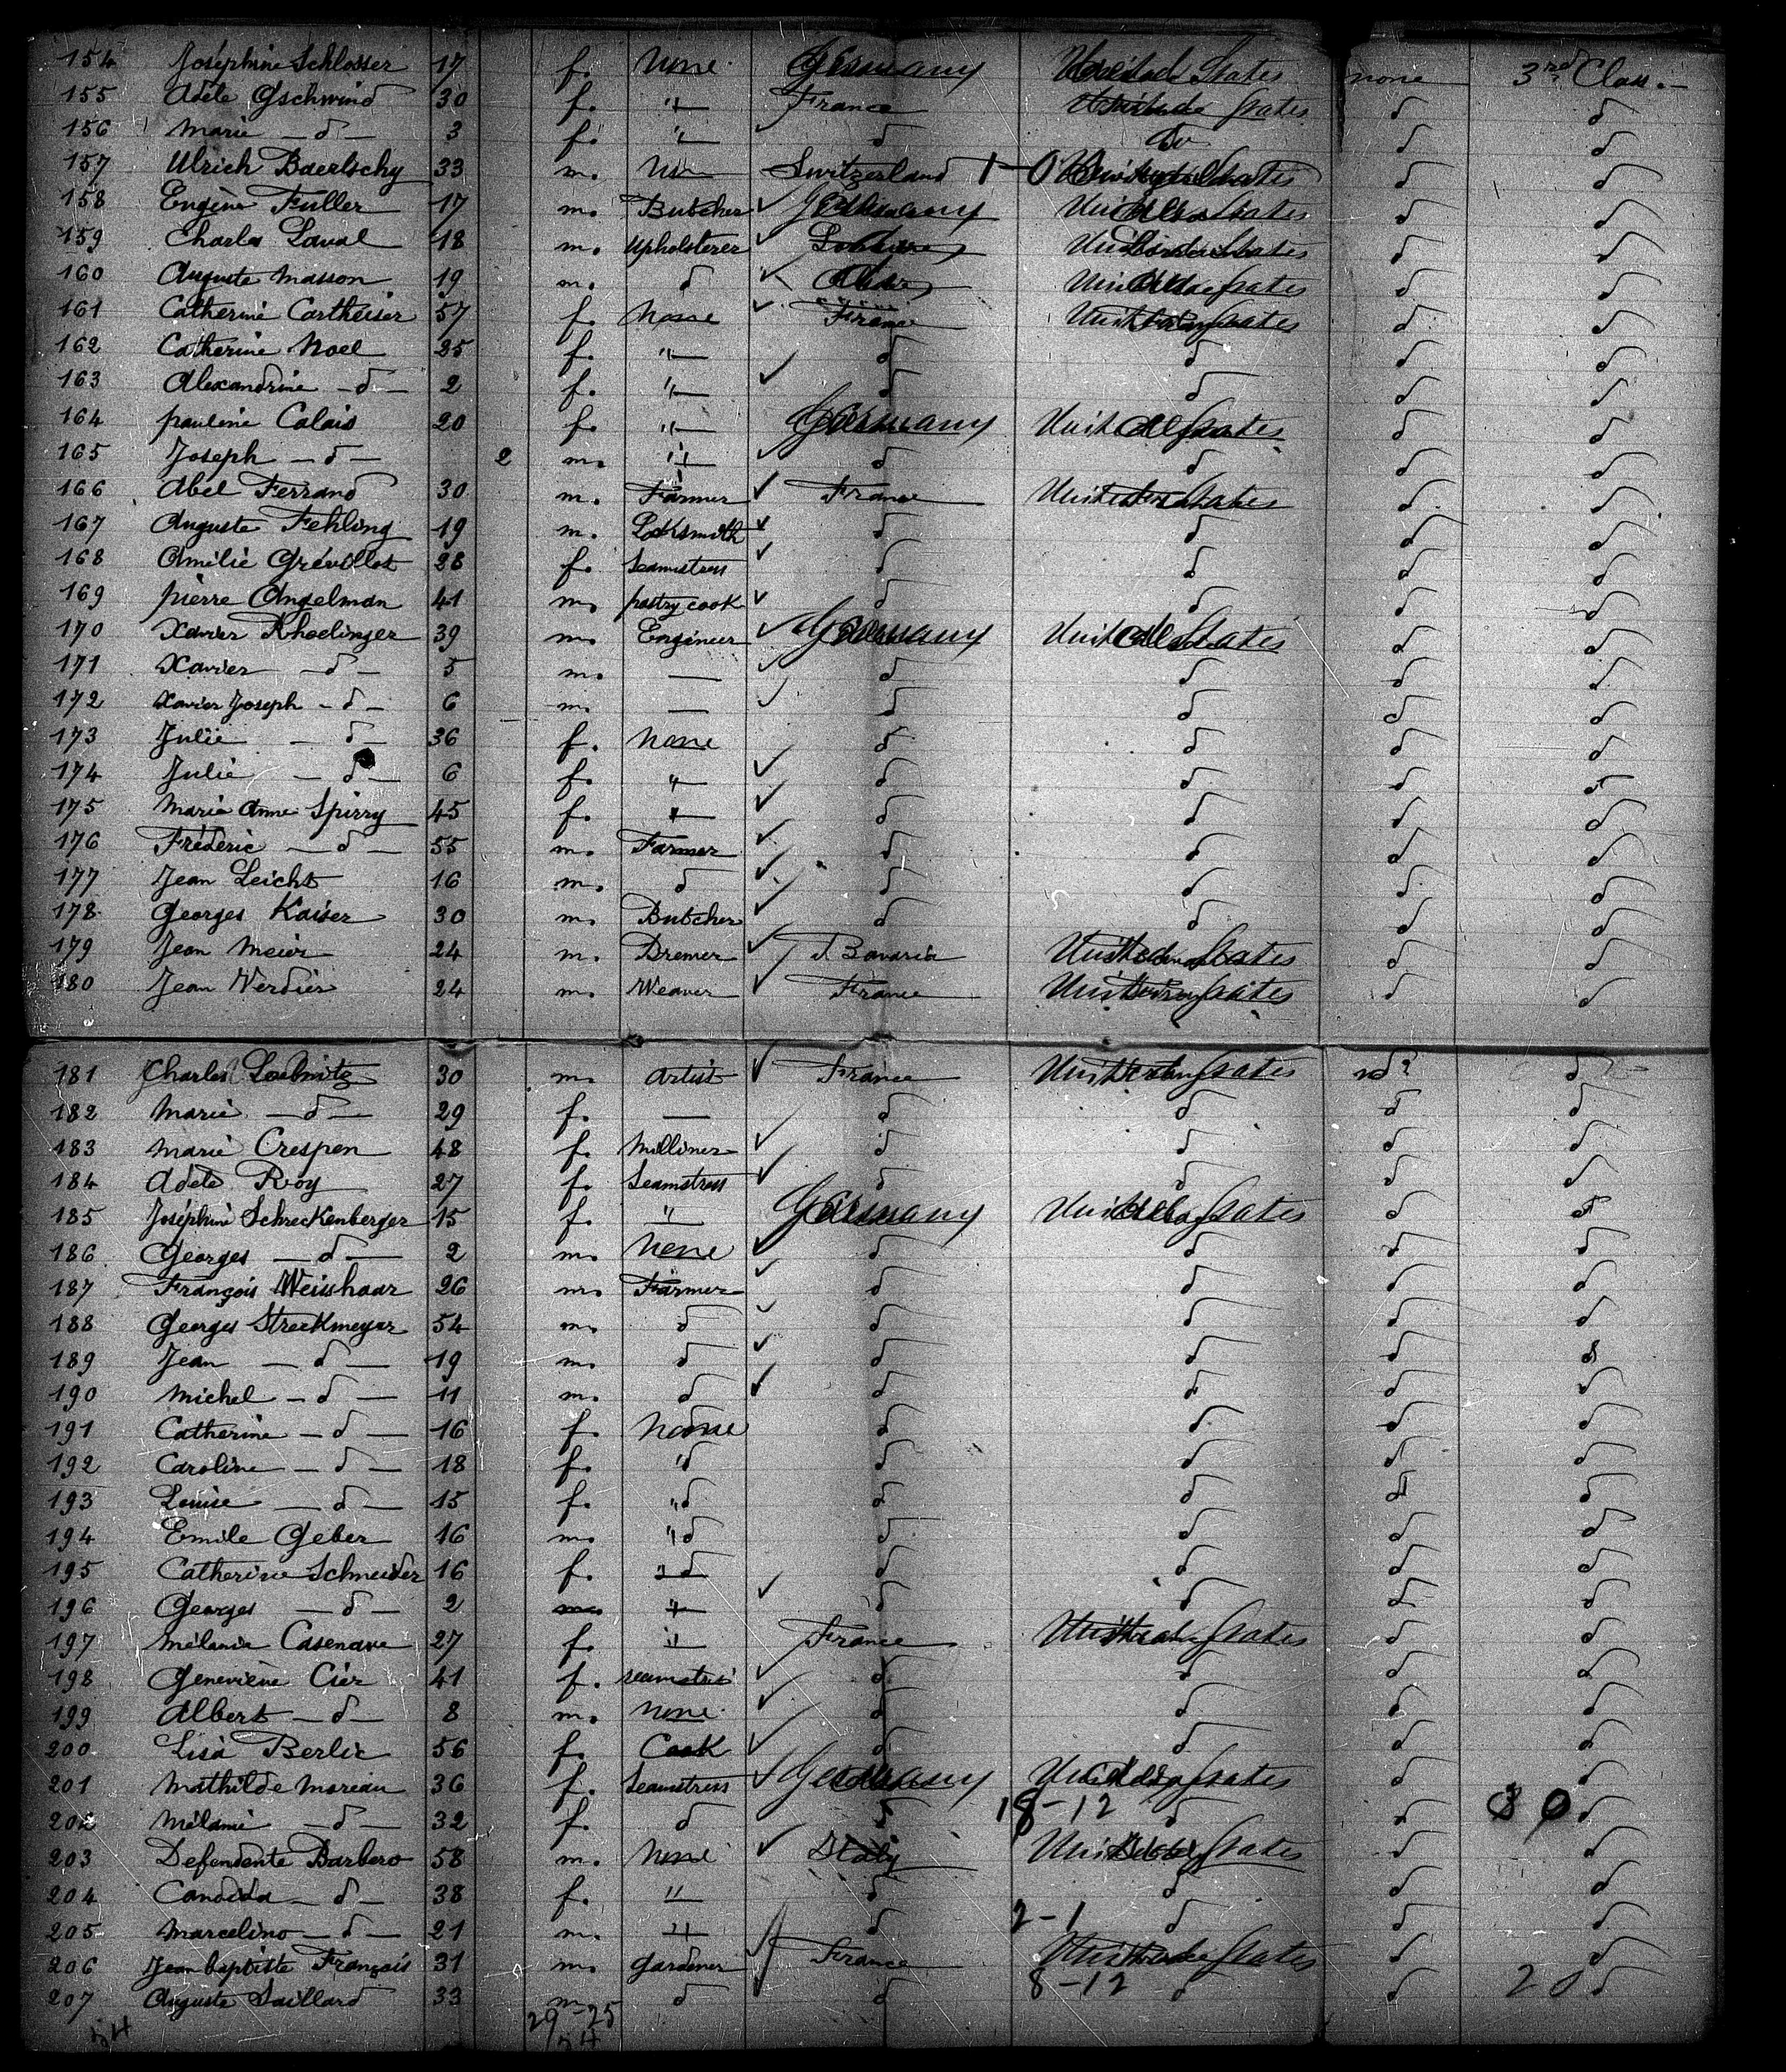 154 Joséphine Schlosser 17 f. None Germany United States none 3rd Class.
155 Adèle Gschwind 30 f. " France United States d d
156 Marie d 3 f. " d Do d d
157 Ulrich Baertschy 33 m. Switzerland 1-0 United States d d
158 Eugène Fuller 17 m. Butcher Germany United States d d
159 Charles Laval 18 m. Upholsterer United States d d
160 Auguste Masson 19 m. d United States d d
161 Catherine Cartheiser 57 f. None France United States d d
162 Catherine Noel 25 f. " d d d d
163 Alexandrine d 2 f. " d d d d
164 pauline Calais 20 f. " Germany United States d d
165 Joseph d 2 m. " d d d d
166 Abel Ferrand 30 m. Farmer France United States d d
167 Auguste Fehling 19 m. Locksmith d d d d
168 Amélie Grévillot 28 f. Seamstress d d d d
169 pierre Angelman 41 m. pastry cook d d d d
170 Xavier Rhoelinger 39 m. Engineer Germany United States d d
171 Xavier d 5 m. — d d d d
172 Xavier Joseph d 6 m. — d d d d
173 Julie d 36 f. None d d d d
174 Julie d 6 f. " d d d d
175 Marie Anne Spirry 45 f. " d d d d
176 Fréderic d 55 m. Farmer d d d d
177 Jean Leicht 16 m. d d d d d
178 Georges Kaiser 30 m. Butcher d d d d
179 Jean Meier 24 m. Bremer Bavaria United States d d
180 Jean Verdier 24 m. Weaver France United States d d
181 Charles Loebnitz 30 m. Artist France United States d d
182 Marie d 29 f. — d d d d
183 Marie Crespen 48 f. Milliner d d d d
184 Adèle Roy 27 f. Seamstress d d d d
185 Joséphine Schreckenberger 15 f. " Germany United States d d
186 Georges d 2 m. None d d d d
187 François Weisshaar 26 m. Farmer d d d d
188 Georges Streckmeyer 54 m. d d d d d
189 Jean d 19 m. d d d d d
190 Michel d 11 m. d d d d d
191 Catherine d 16 f. None d d d d
192 Caroline d 18 f. "d d d d d
193 Louise d 15 f. "d d d d d
194 Emile Geber 16 m. "d d d d d
195 Catherine Schneider 16 f. "d d d d d
196 Georges d 2 m. " d d d d
197 Mélanie Casenave 27 f. " France United States d d
198 Geneviève Cier 41 f. seamstress d d d d
199 Albert d 8 m. none d d d d
200 Lisa Berlie 56 f. Cook d d d d
201 Mathilde Moreau 36 f. Seamstress Germany United States d d
202 Mélanie d 32 f. d d 18-12 d d 30 d
203 Defendente Barbero 58 m. None Italy United States d d
204 Candida d 38 f. " d d d d
205 Marcelino d 21 m. " d 2-1 d d d
206 Jean baptiste François 31 m. Gardener France United States d d
207 Auguste Saillard 33 m. d d 8-12 d d 20 d
54 29-25
54